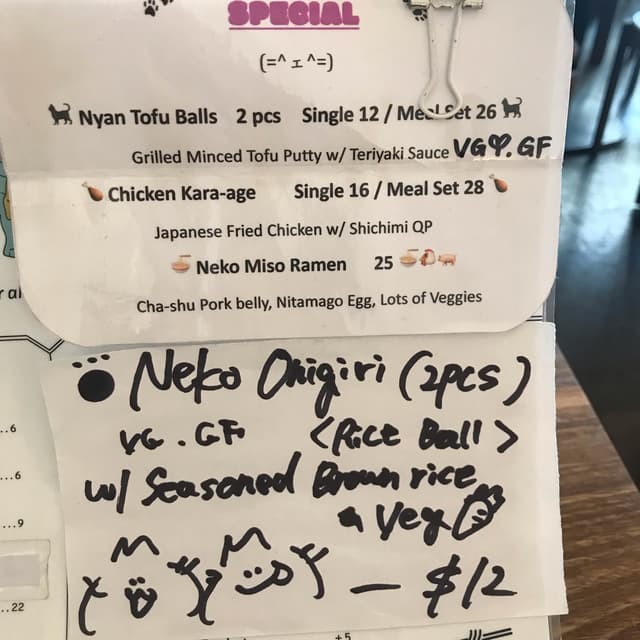 SPECIAL
(=^ェ^=)
Nyan Tofu Balls 2 pcs Single 12 / Meal Set 26
Grilled Minced Tofu Putty w/ Teriyaki Sauce VG♡.GF
Chicken Kara-age Single 16 / Meal Set 28
Japanese Fried Chicken w/ Shichimi QP
Neko Miso Ramen 25
Cha-shu Pork belly, Nitamago Egg, Lots of Veggies
Neko Onigiri (2pcs)
VG.GF <Rice Ball>
w/ Seasoned Brown rice
& Veg
— $12
..6
...6
...9
..22
+5